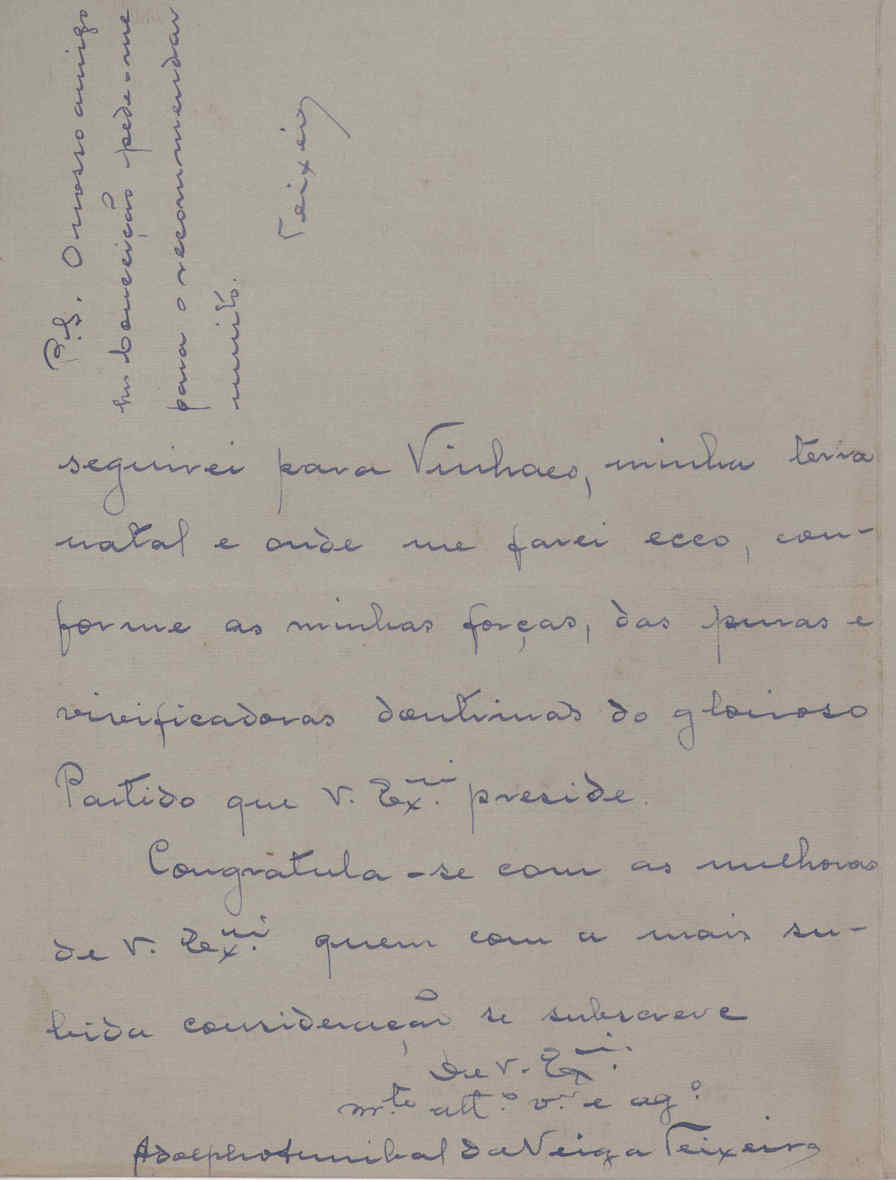 seguirei para Vinhaes, minha terra
natal e onde me farei ecco, con-
forme as minhas forças, das puras e
vivificadoras doutrinas do glorioso
Partido que V. Ex.ª preside.
Congratula-se com as melhoras
de V. Ex.ª quem com a mais su-
bida consideração se subscreve
De V. Ex.ª
m.to att.º v.or e ag.º
Adolpho Annibal da Veiga Teixeira
P.S. O nosso amigo
Conceição pede-me
para o recommendar
muito.
Teixeira